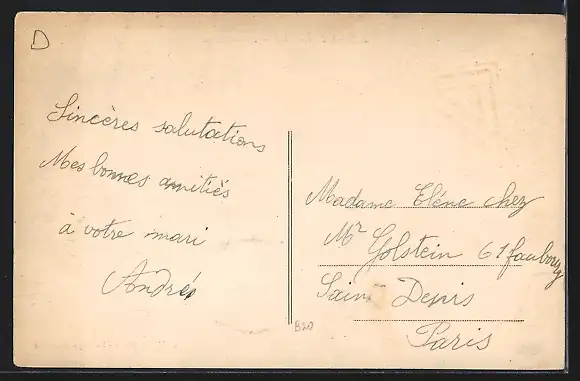 D
Sincères salutations
Mes bonnes amitiés
à votre mari
André
Madame Eléne chez
Mr Golstein 61 faubourg
Saint Denis
Paris
B20